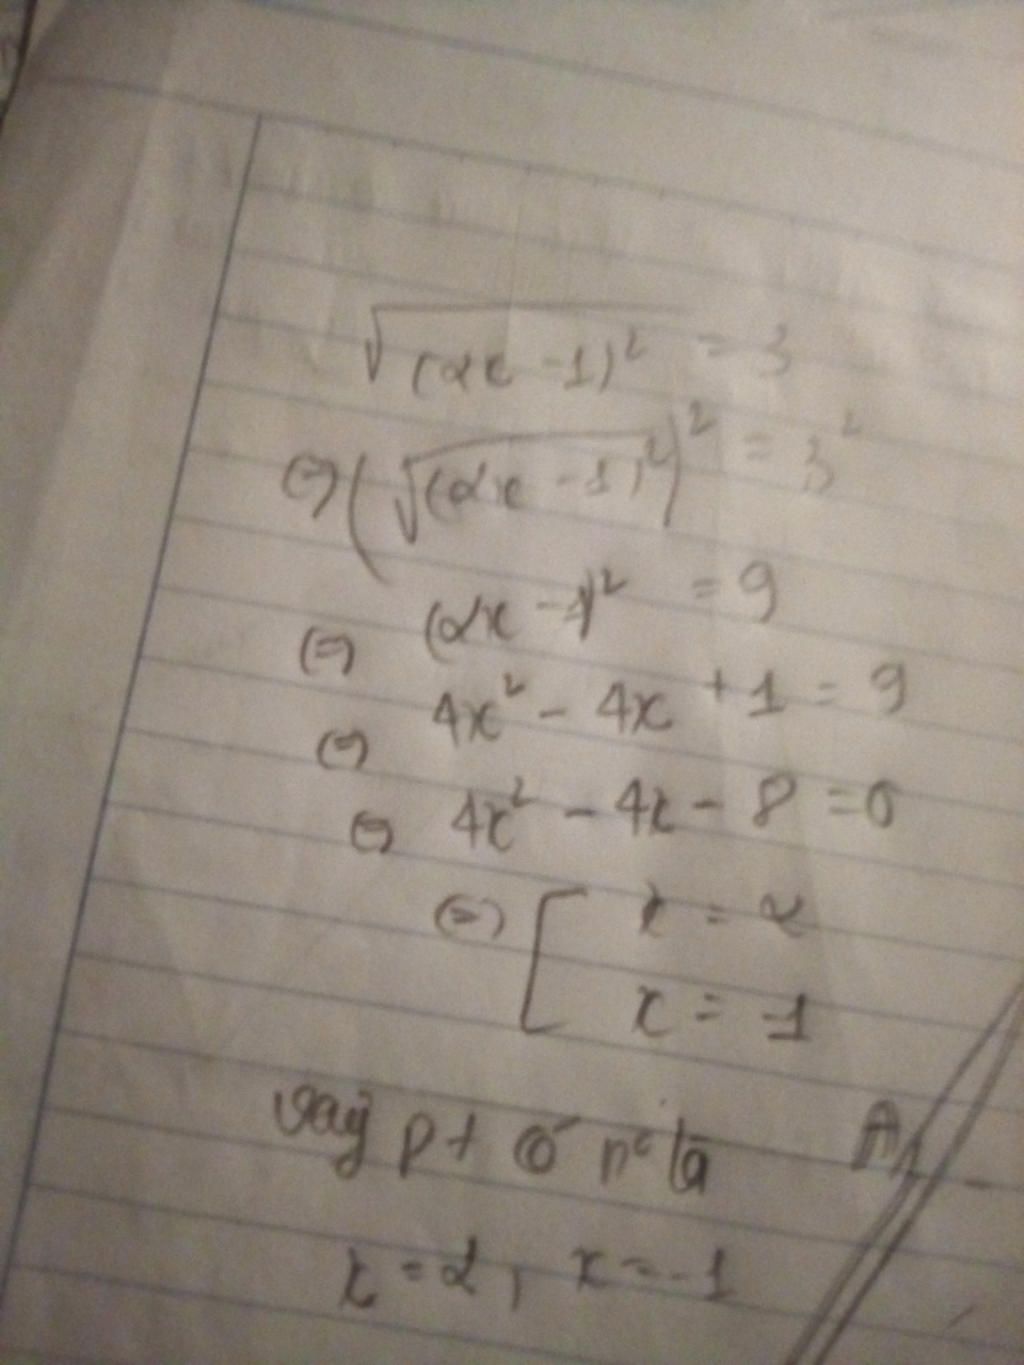 √(2x - 1)² = 3
⇔ (√(2x - 1)²)² = 3²
⇔ (2x - 1)² = 9
⇔ 4x² - 4x + 1 = 9
⇔ 4x² - 4x - 8 = 0
⇔ [ x = 2
x = -1
Vậy pt có n° là
x = 2, x = -1